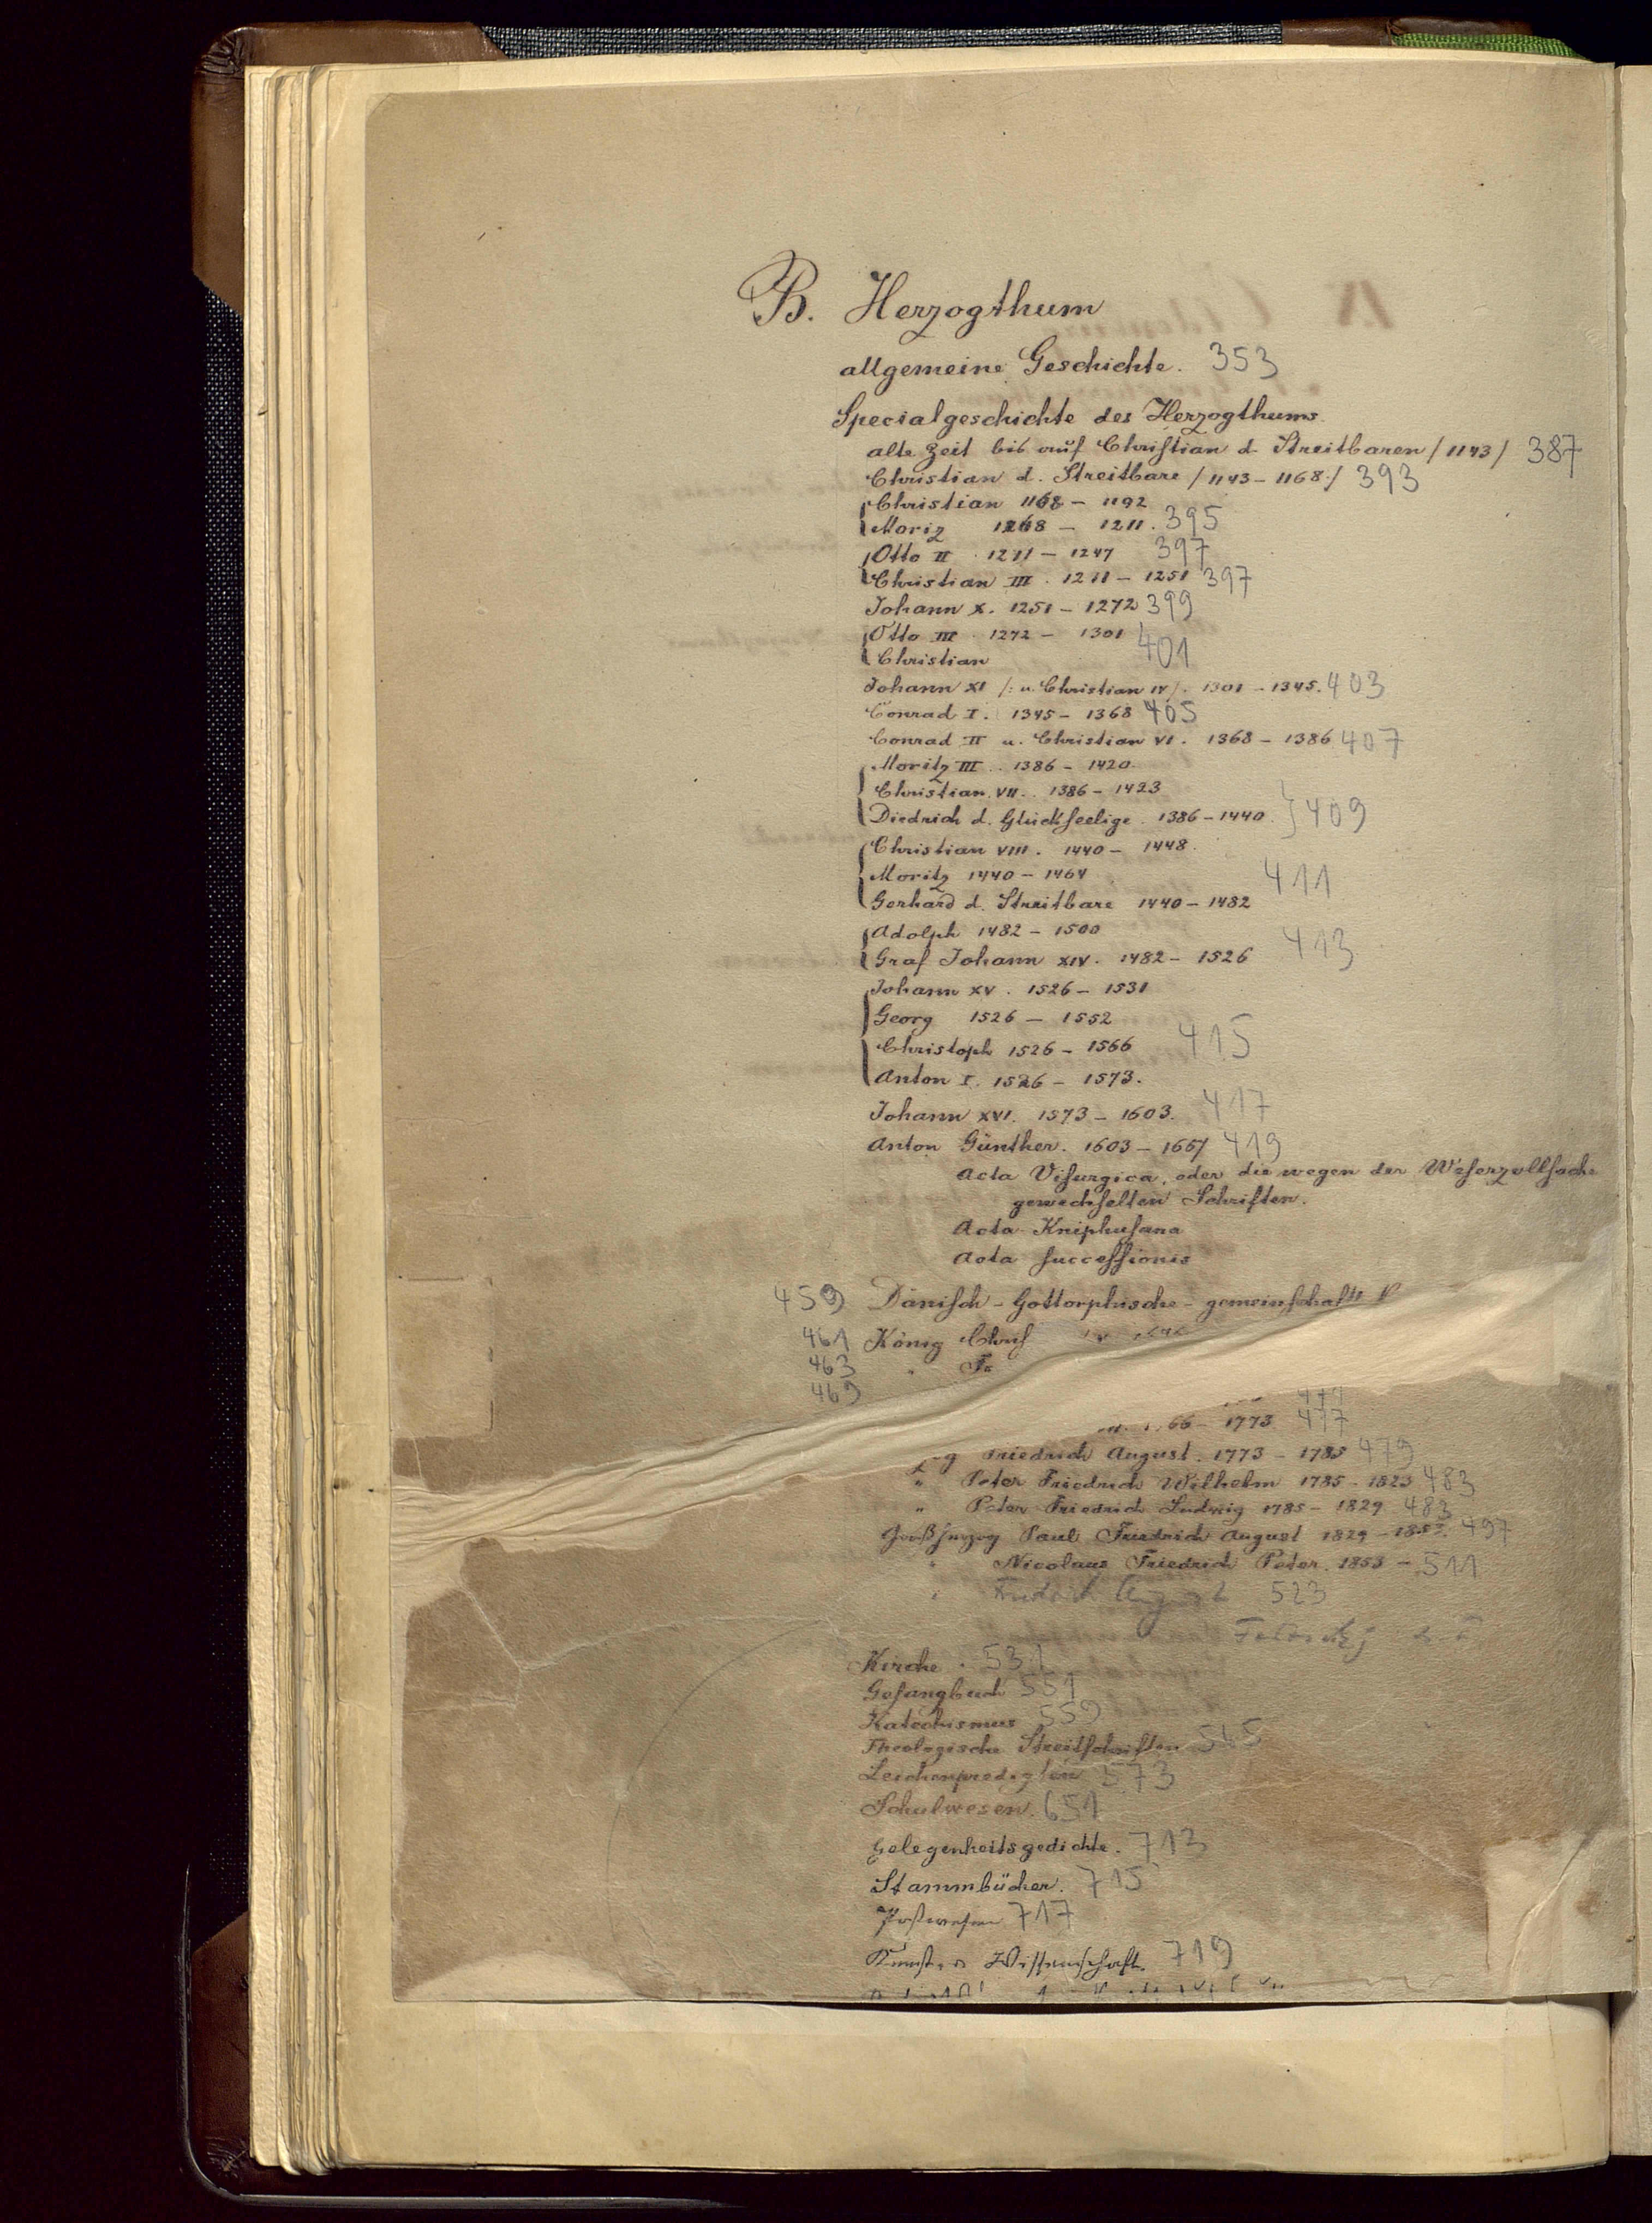 B. Herzogthum
allgemeine Geschichte. 353
Specialgeschichte des Herzogthums
alte Zeit bis auf Christian d. Streitbaren /1143/ 387
Christian d. Streitbare /1143 - 1168/ 393
Christian 1168 - 1192
Moriz 1268 - 1211. 395
Otto II. 1211 - 1247 397
Christian III. 1211 - 1251 397
Johann X. 1251 - 1272 399
Otto III. 1272 - 1301
Christian 401
Johann XI /: u. Christian IV/. 1301 - 1345. 403
Conrad I. 1345 - 1368 405
Conrad II u. Christian VI. 1368 - 1386 407
Moritz III. 1386 - 1420.
Christian VII. 1386 - 1423
Diedrich d. Glückseelige. 1386 - 1440. } 409
Christian VIII. 1440 - 1448.
Moritz 1440 - 1464 411
Gerhard d. Streitbare 1440 - 1482
Adolph 1482 - 1500
Graf Johann XIV. 1482 - 1526 413
Johann XV. 1526 - 1531
Georg 1526 - 1552
Christoph 1526 - 1566 415
Anton I. 1526 - 1573.
Johann XVI. 1573 - 1603. 417
Anton Günther. 1603 - 1667 419
Acta Visurgica, oder die wegen der Weserzollsache
gewechselten Schriften.
Acta Kniphusana
Acta successionis
459 Dänisch - Gottorphische - gemeinschaftl
461 König
463
469
477
66 - 1773 477
Friedrich August. 1773 - 1785 479
" Peter Friedrich Wilhelm 1785 - 1823 483
" Peter Friedrich Ludwig 1785 - 1829 483
Großherzog Paul Friedrich August 1829 - 1853. 497
" Nicolaus Friedrich Peter. 1853 - 511
" Friedrich August 523
Kirche. 531
Gesangbuch 551
Katechismus 559
Theologische Streitschriften 565
Leichenpredigten 573
Schulwesen. 651
Gelegenheitsgedichte. 713
Stammbücher. 715
Postwesen 717
Kunst u Wissenschaft. 719